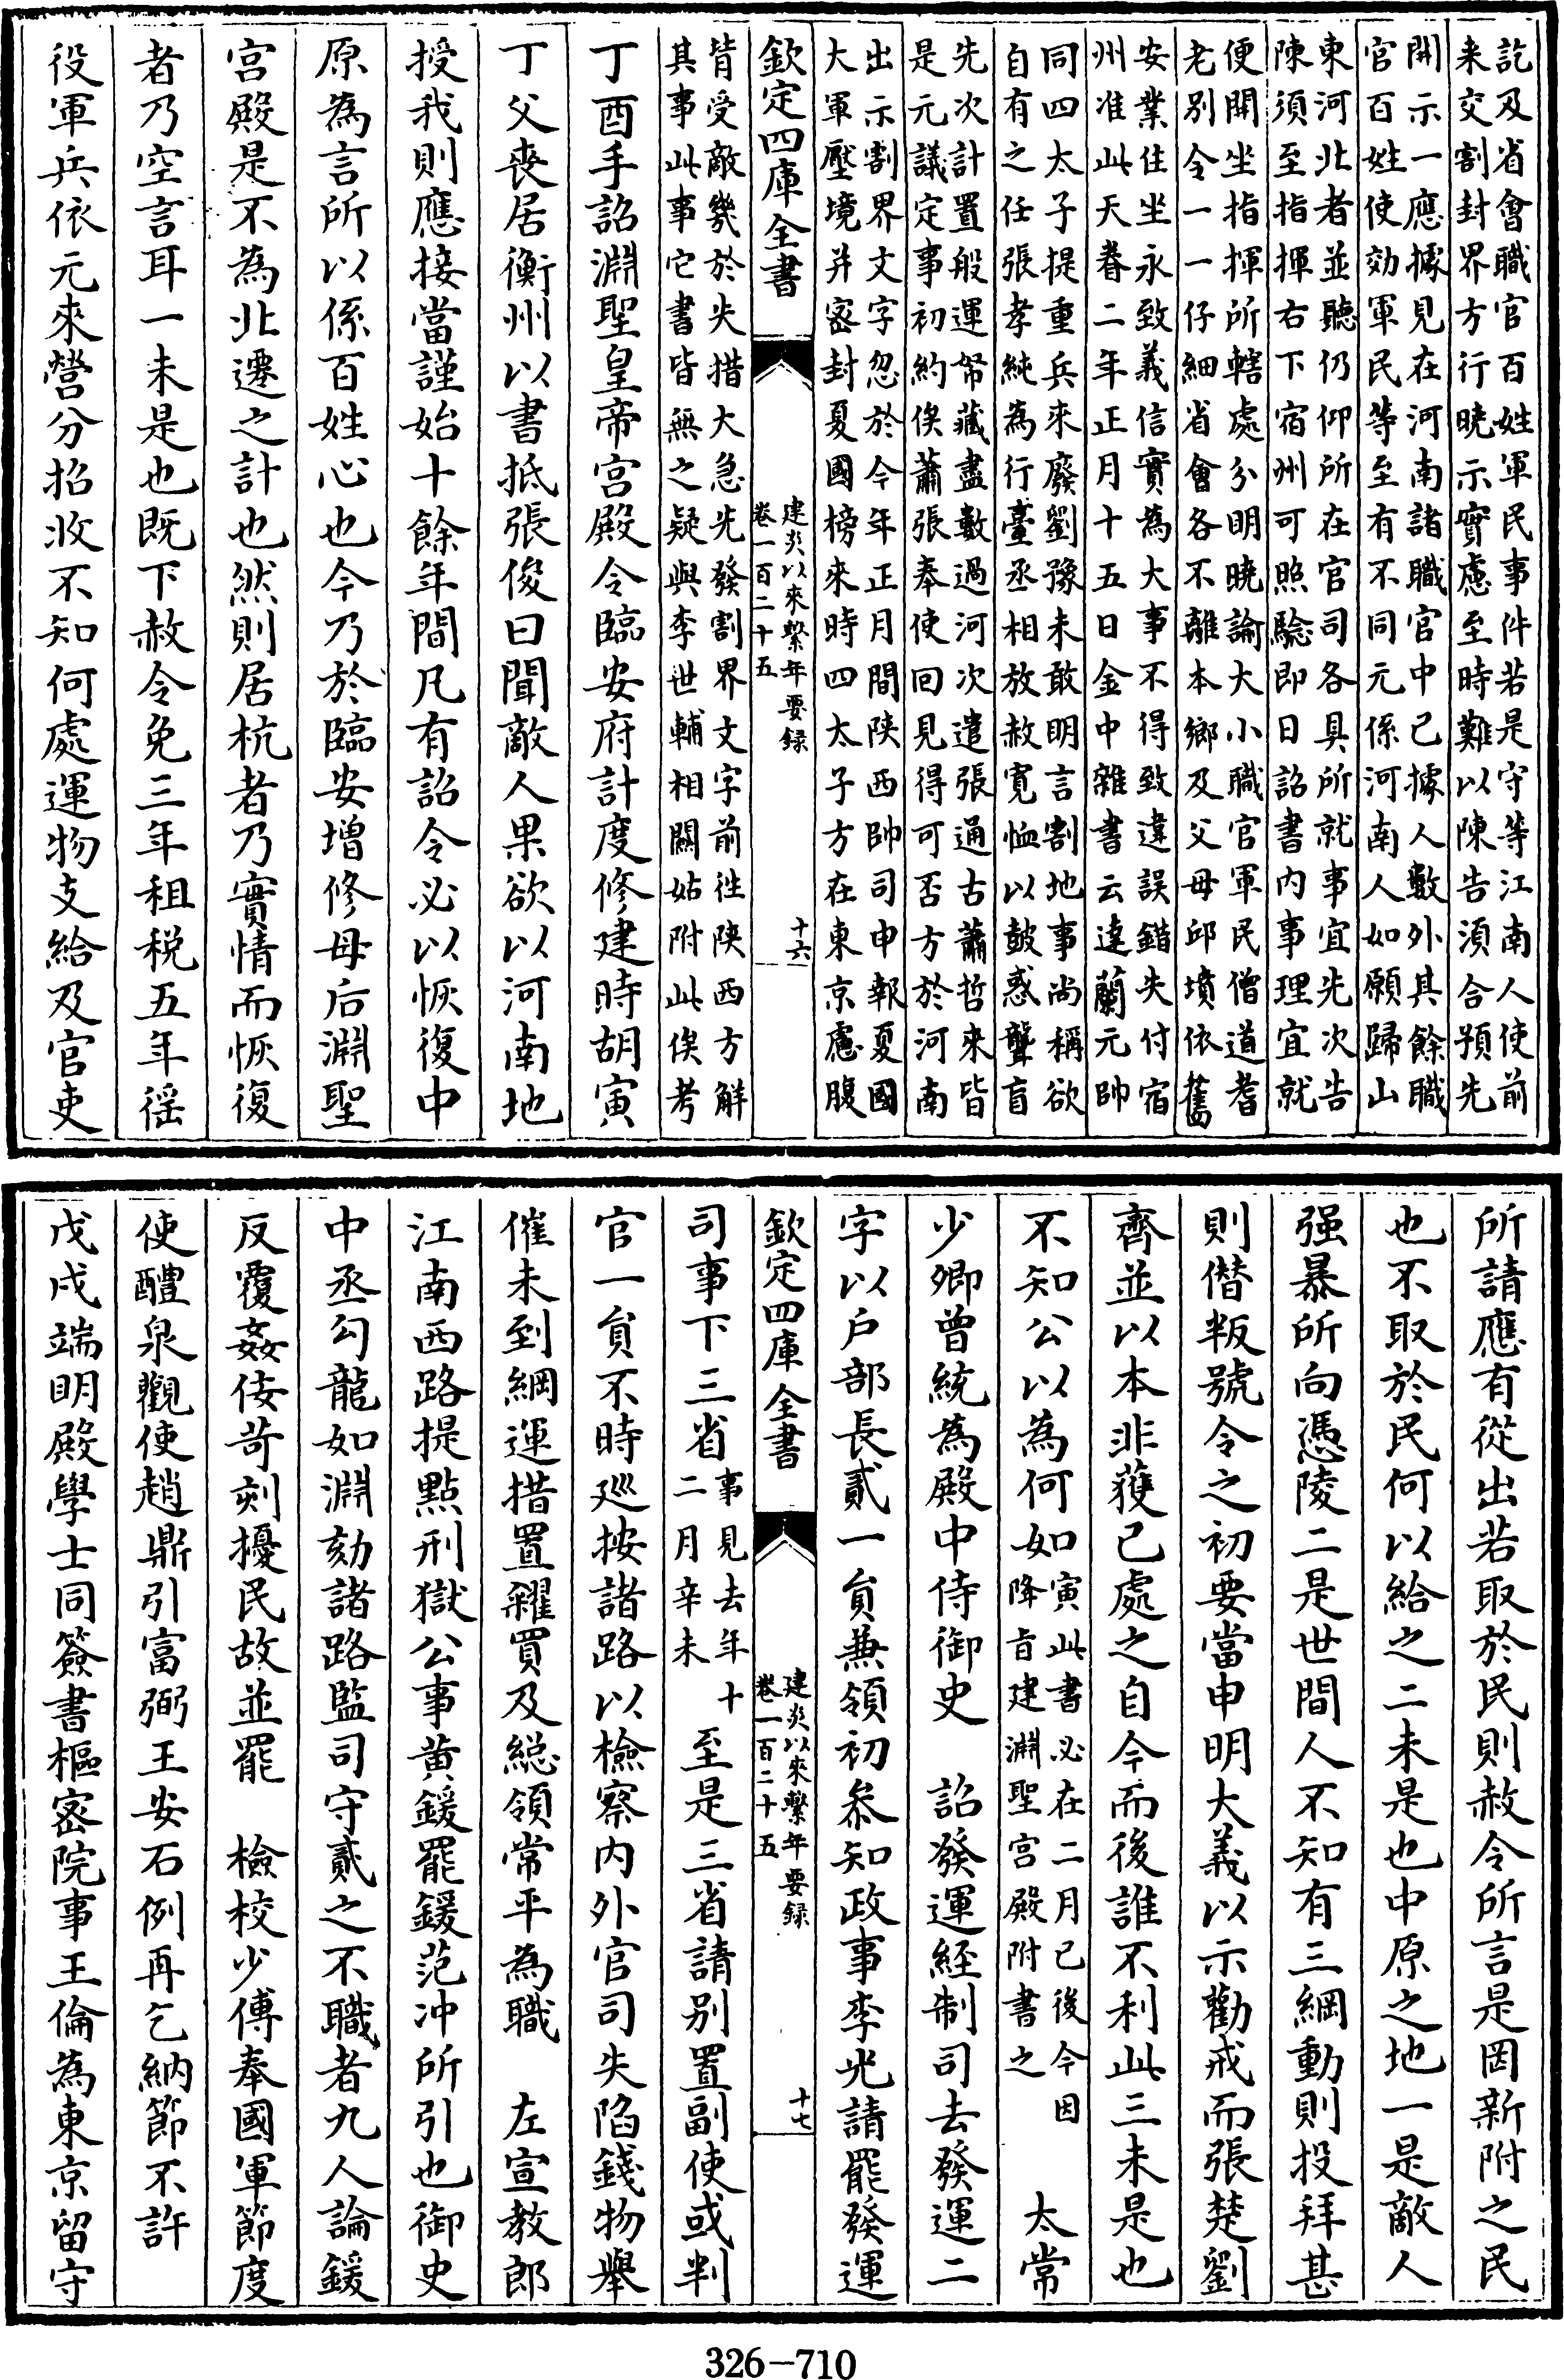 訖及省會職官百姓軍民事件若是守等江南人使前
来交割封界方行曉示實慮至時難以陳告湏合預先
開示一應據見在河南諸職官中已據人數外其餘職
官百姓使効軍民等至有不同元係河南人如願歸山
東河北者並聽仍仰所在官司各具所就事宜先次告
陳須至指揮右下宿州可照驗即日詔書内事理宜就
便開坐指揮所轄處分明曉論大小職官軍民僧道耆
老别令一一仔細省會各不離本鄉及父母邱墳依舊
安業住坐永致義信實為大事不得致違誤錯失付宿
州准此天眷二年正月十五日金中雜書云達蘭元帥
同四太子提重兵來廢劉豫未敢明言割地事尚稱欲
自有之任張孝純為行臺丞相放赦寬恤以鼓惑聾盲
先次計置般運帑藏盡數過河次遣張通古蕭哲來皆
是元議定事初約俟蕭張奉使回見得可否方於河南
出示割界文字忽於今年正月間陜西帥司申報夏國
大軍壓境并宻封夏國榜來時四太子方在東京慮腹
欽定四庫全書
建炎以來繫年要録
卷一百二十五
十六
皆受敵幾於失措大急先發割界文字前徃陜西方解
其事此事它書皆無之疑與李世輔相關姑附此俟考
丁酉手詔淵聖皇帝宫殿令臨安府計度修建時胡寅
丁父喪居衡州以書抵張俊曰聞敵人果欲以河南地
授我則應接當謹始十餘年間凡有詔令必以恢復中
原為言所以係百姓心也今乃於臨安增修母后淵聖
宫殿是不為北遷之計也然則居杭者乃實情而恢復
者乃空言耳一未是也既下赦令免三年租税五年徭
役軍兵依元來營分招收不知何處運物支給及官吏
所請應有從出若取於民則赦令所言是罔新附之民
也不取於民何以給之二未是也中原之地一是敵人
强暴所向憑陵二是世間人不知有三綱動則投拜甚
則僣叛號令之初要當申明大義以示勸戒而張楚劉
齊並以本非獲已處之自今而後誰不利此三未是也
不知公以為何如
寅此書必在二月已後今因
降旨建淵聖宫殿附書之
太常
少卿曾統為殿中侍御史　詔發運經制司去發運二
字以戶部長貳一員兼領初叅知政事李光請罷發運
欽定四庫全書
建炎以來繫年要録
卷一百二十五
十七
司事下三省
事見去年十
二月辛未
至是三省請别置副使或判
官一員不時廵按諸路以檢察内外官司失陷錢物舉
催未到綱運措置糴買及総領常平為職　左宣教郎
江南西路提點刑獄公事黄鍰罷鍰范冲所引也御史
中丞勾龍如淵劾諸路監司守貳之不職者九人論鍰
反覆姦佞苛刻擾民故並罷　檢校少傅奉國軍節度
使醴泉觀使趙鼎引富弼王安石例再乞納節不許
戊戌端明殿學士同簽書樞宻院事王倫為東京留守
326-710